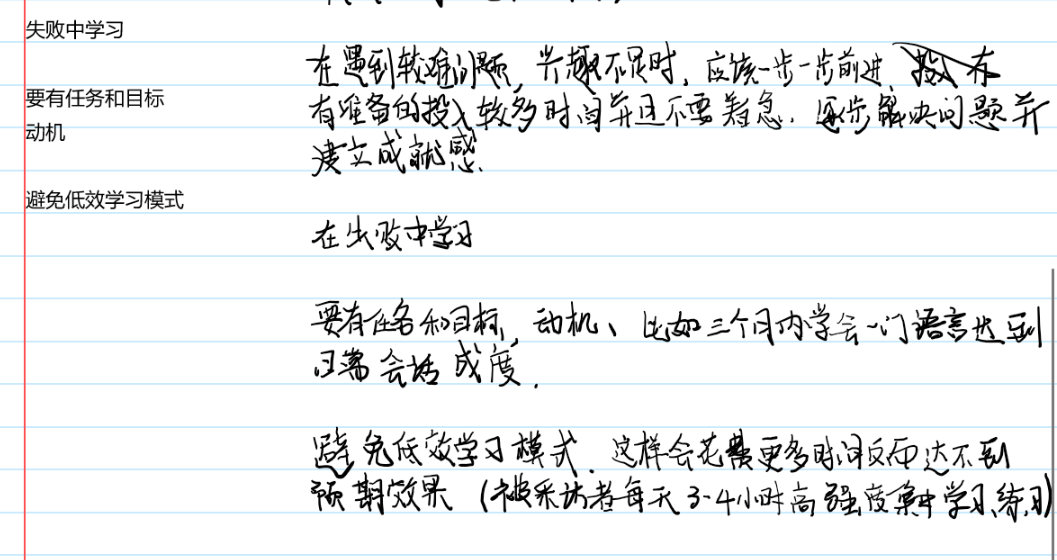 失败中学习
要有任务和目标
动机
避免低效学习模式
在遇到较难问题，兴趣不足时，应该一步一步前进，
有准备的投入较多时间并且不要着急．逐步解决问题并
建立成就感．
在失败中学习
要有任务和目标，动机、比如三个月内学会一门语言达到
日常会话成度．
避免低效学习模式．这样会花费更多时间反而达不到
预期效果（被采访者每天3-4小时高强度集中学习练习）